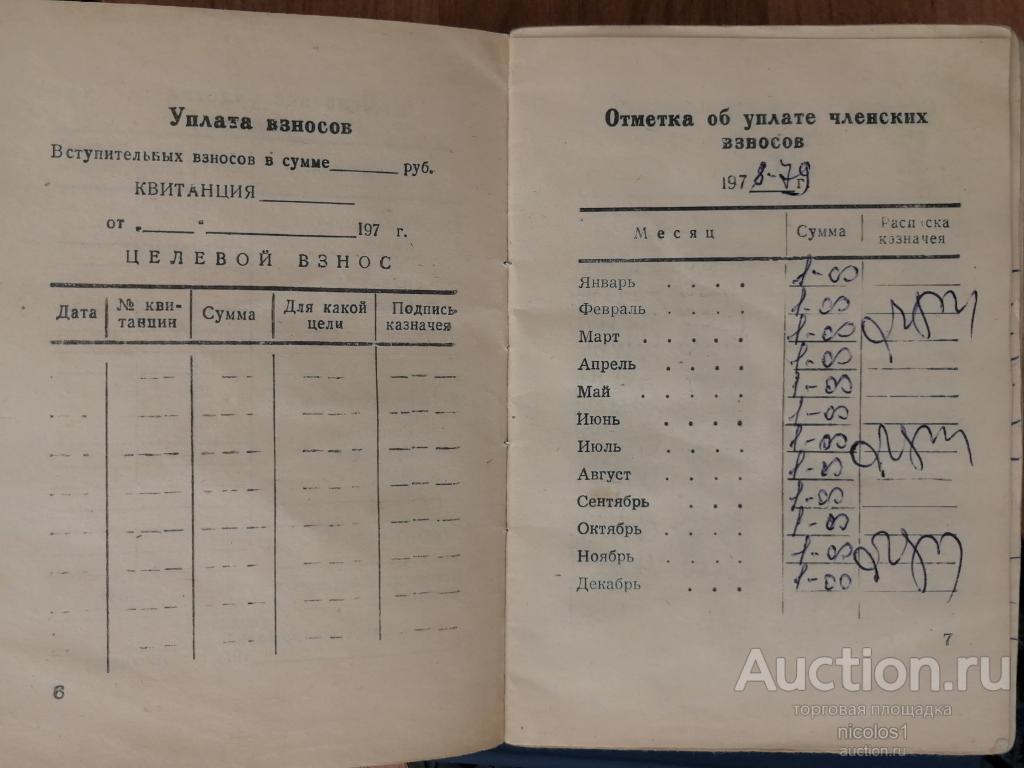 Уплата взносов
Вступительных взносов в сумме______ руб.
КВИТАНЦИЯ________
от „_____“______________197 г.
ЦЕЛЕВОЙ ВЗНОС
Дата № квитанции Сумма Для какой цели Подпись казначея
6
Отметка об уплате членских
взносов
1978-79 г
Месяц Сумма Расписка казначея
Январь . . . . 1-00
Февраль . . . . 1-00
Март . . . . 1-00
Апрель . . . . 1-00
Май . . . . 1-00
Июнь . . . . 1-00
Июль . . . . 1-00
Август . . . . 1-00
Сентябрь . . . . 1-00
Октябрь . . . . 1-00
Ноябрь . . . . 1-00
Декабрь . . . . 1-00
7
Auction.ru
торговая площадка
nicolos1
auction.ru